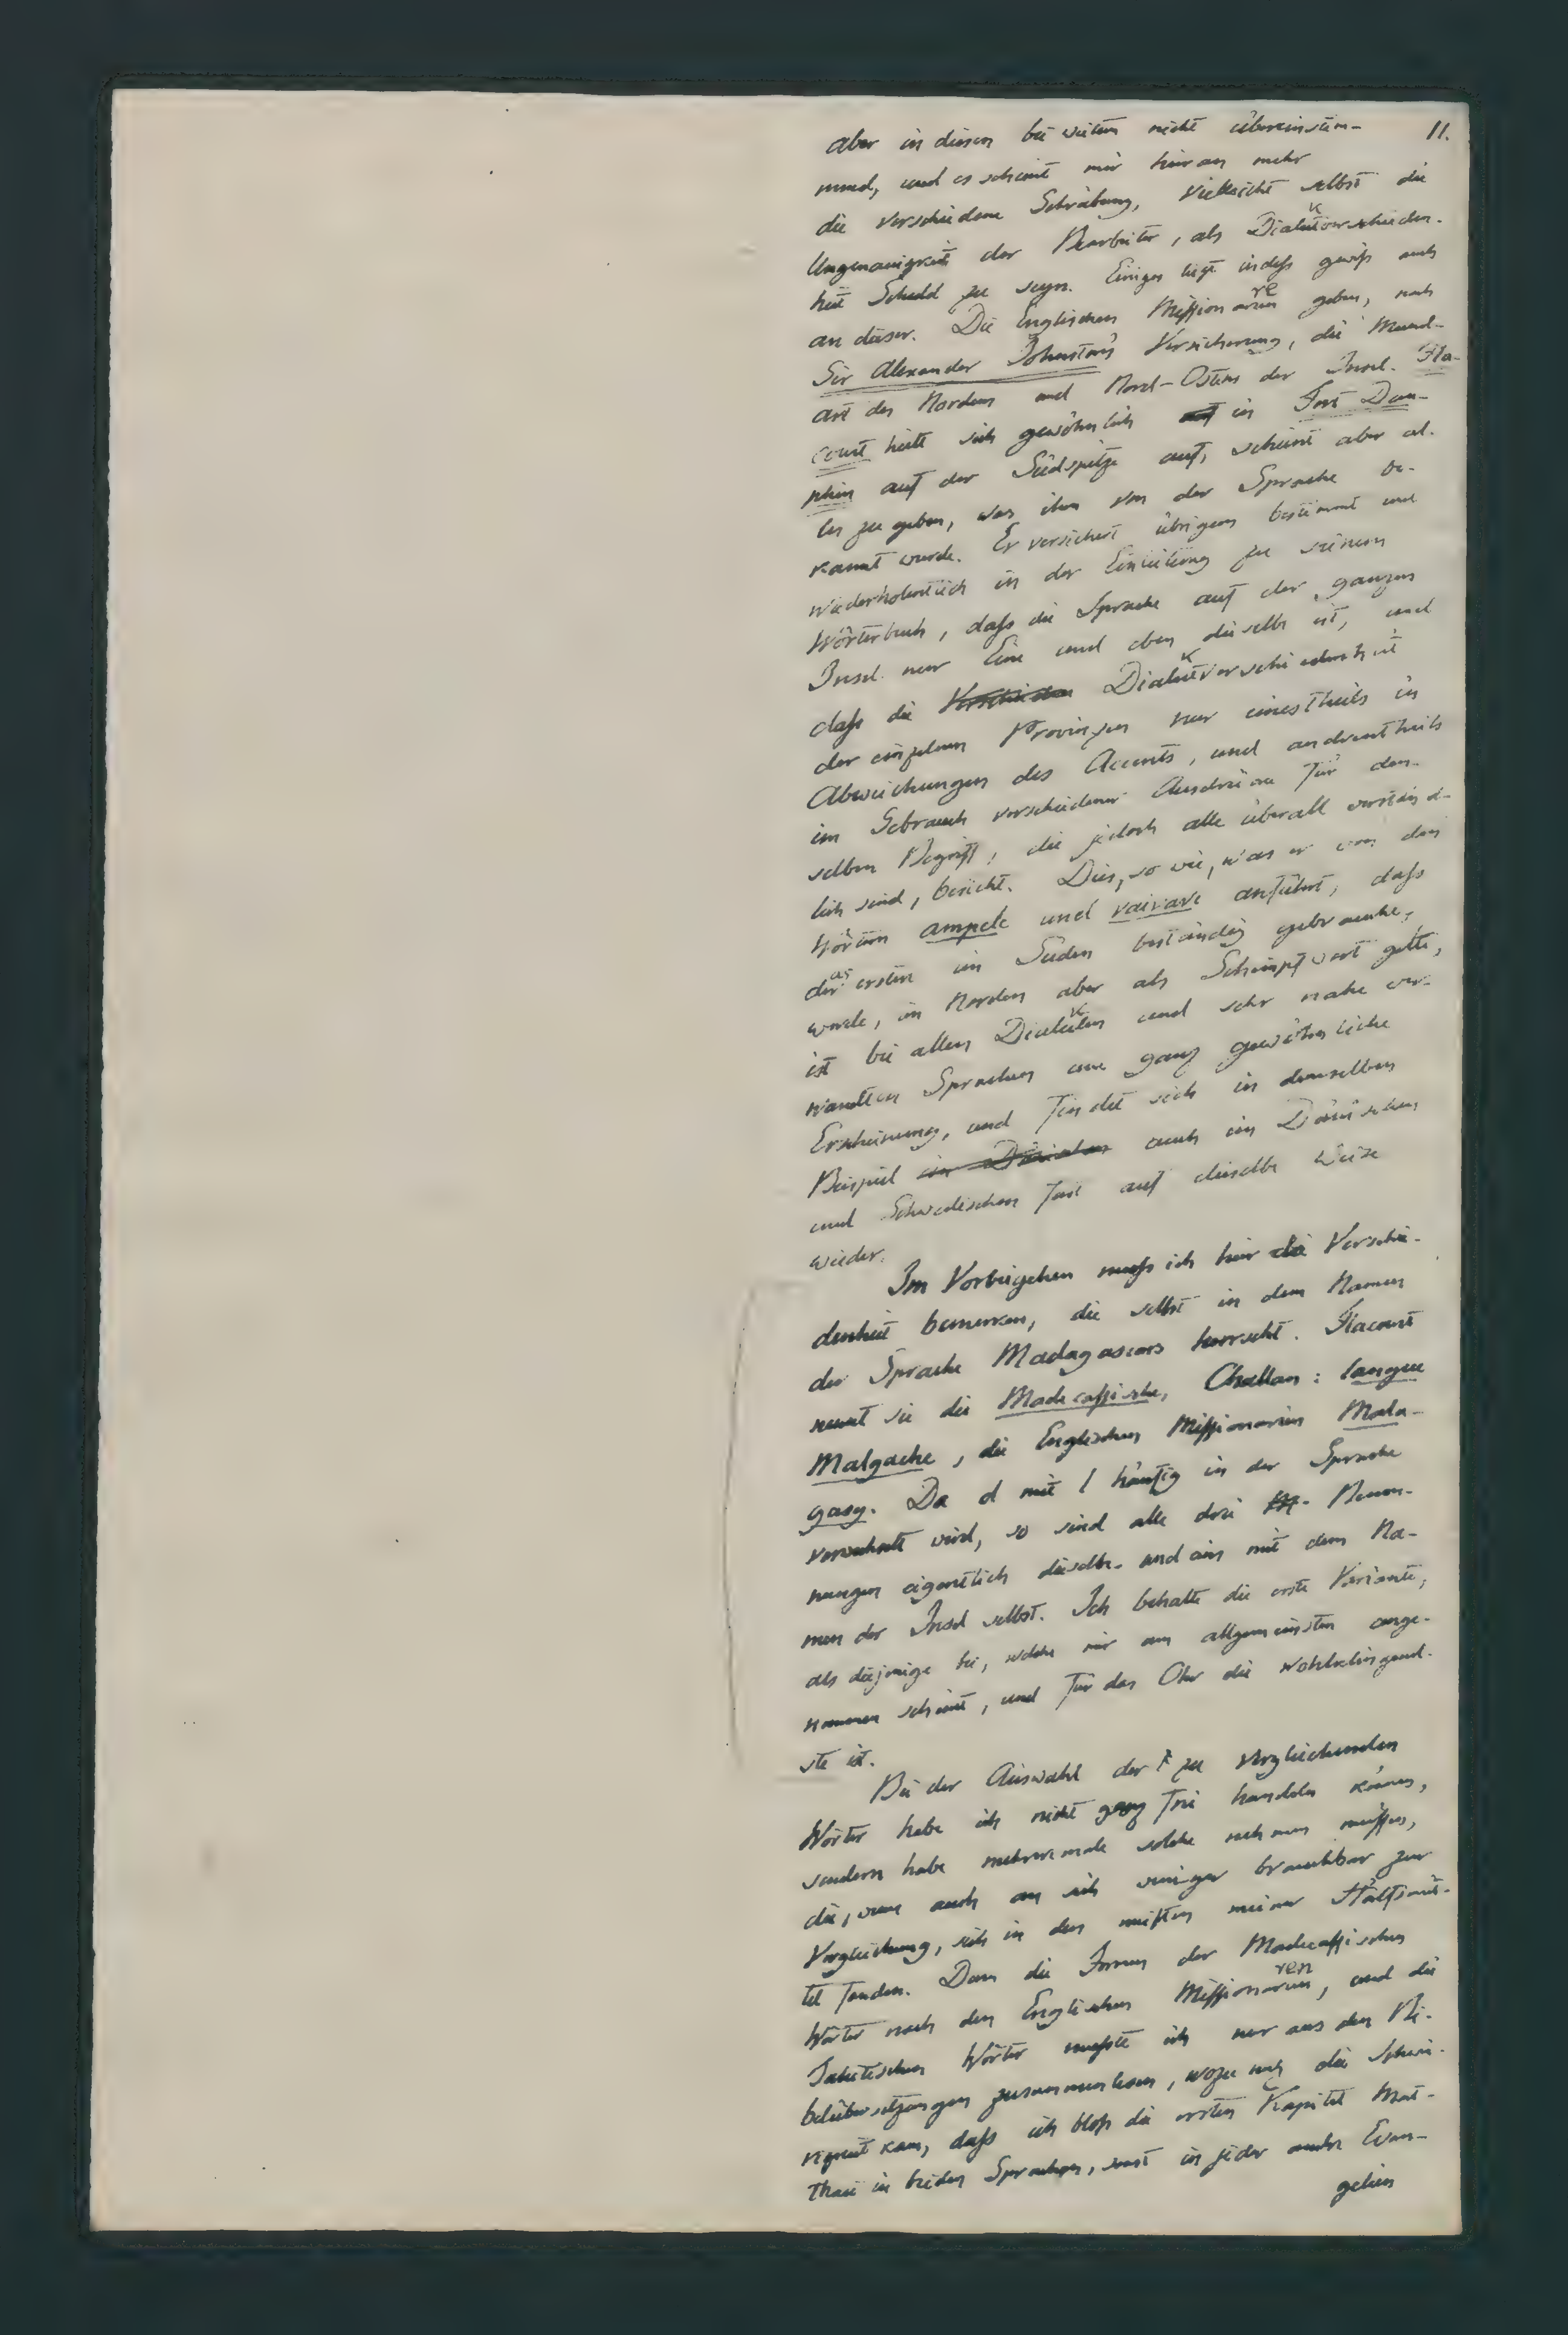 11.
aber in diesen bei weitem nicht übereinstim-
mend, und es scheint mir hieran mehr
die verschiedene Schreibung, vielleicht selbst die
Ungenauigkeit der Bearbeiter, als Dialektverschieden-
heit Schuld zu seyn. Einiges liegt indeß gewiß auch
an dieser. Die Englischen Missionare geben, nach
Sir Alexander Johnston's Versicherung, die Mund-
art des Nordens und Nord-Ostens der Insel. Fla-
court hielt sich gewöhnlich auf in Fort Dau-
phin auf der Südspitze auf, scheint aber al-
les zu geben, was ihm von der Sprache be-
kannt wurde. Er versichert übrigens bestimmt und
wiederholentlich in der Einleitung zu seinem
Wörterbuch, daß die Sprache auf der ganzen
Insel nur Eine und eben dieselbe ist, und
daß die Verschieden Dialektverschiedenheit
der einzelnen Provinzen nur eines Theils in
Abweichungen des Accents, und andrentheils
im Gebrauch verschiedener Ausdrücke für den-
selben Begriff, die jedoch alle überall verständ-
lich sind, besteht. Dies, so wie, was er von den
Wörtern ampele und vaivave anführt, daß
das erstere im Süden beständig gebraucht,
werde, im Norden aber als Schimpfwort gelte,
ist bei allen Dialekten und sehr nahe ver-
wandten Sprachen eine ganz gewöhnliche
Erscheinung, und findet sich in demselben
Beispiel im Dänischen auch im Dänischen
und Schwedischen fast auf dieselbe Weise
wieder.
Im Vorbeigehen muß ich hier die Verschie-
denheit bemerken, die selbst in dem Namen
der Sprache Madagascars herrscht. Flacourt
nennt sie die Madecassische, Challan: langue
Malgache, die Englischen Missionarien Mala-
gasy. Da d mit l häufig in der Sprache
verwechselt wird, so sind alle drei Benen-
nungen eigentlich dieselben und eins mit dem Na-
men der Insel selbst. Ich behalte die erste Variante,
als diejenige bei, welche mir am allgemeinsten ange-
nommen scheint, und für das Ohr die wohlklingend-
ste ist.
Bei der Auswahl der zu vergleichenden
Wörter habe ich nicht ganz frei handeln können,
sondern habe mehreremale solche nehmen müssen,
die, wenn auch an sich weniger brauchbar zur
Vergleichung, sich in den meisten meiner Hülfsmit-
tel fanden. Denn die Formen der Madecassischen
Wörter nach den Englischen Missionaren, und die
Tahitischen Wörter mußte ich nur aus den Bi-
belübersetzungen zusammenlesen, wozu noch die Schwie-
rigkeit kam, daß ich bloß die ersten Kapitel Mat-
thaei in beiden Sprachen, sonst in jeder andre Evan-
gelien